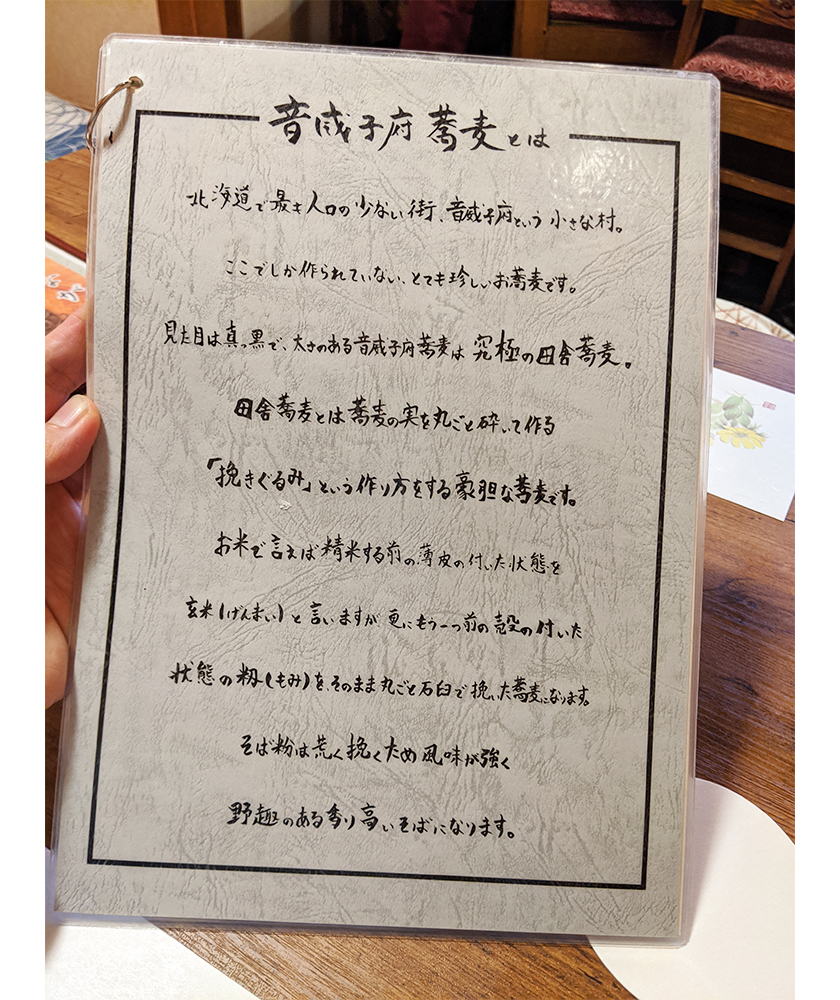 音威子府蕎麦とは
北海道で最も人口の少ない街、音威子府という小さな村。
ここでしか作られていない、とても珍しいお蕎麦です。
見た目は真っ黒で、太さのある音威子府蕎麦は究極の田舎蕎麦。
田舎蕎麦とは蕎麦の実を丸ごと砕いて作る
「挽きぐるみ」という作り方をする豪胆な蕎麦です。
お米で言えば精米する前の薄皮の付いた状態を
玄米(げんまい)と言いますが更にもう一つ前の殻の付いた
状態の籾(もみ)を、そのまま丸ごと石臼で挽いた蕎麦になります。
そば粉は荒く挽くため風味が強く
野趣のある香り高いそばになります。